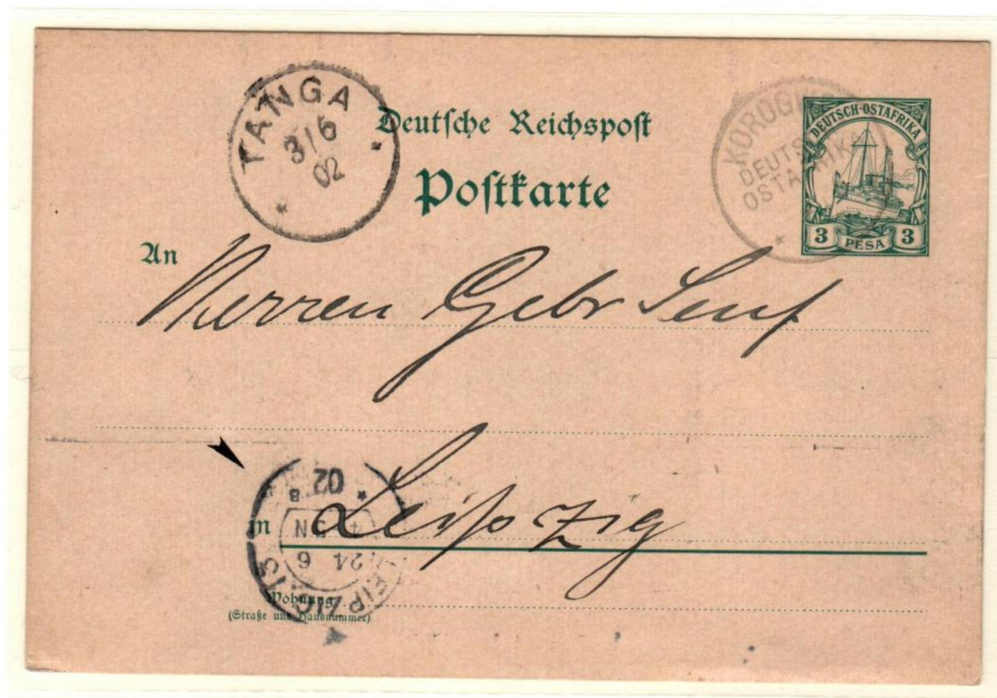 TANGA
3/6
02
Deutsche Reichspost
Postkarte
DEUTSCH-OSTAFRIKA
3 PESA 3
An
Herren Gebr Senf
in Leipzig
LEIPZIG
24 6
02
B
Wohnung
(Straße und Hausnummer)